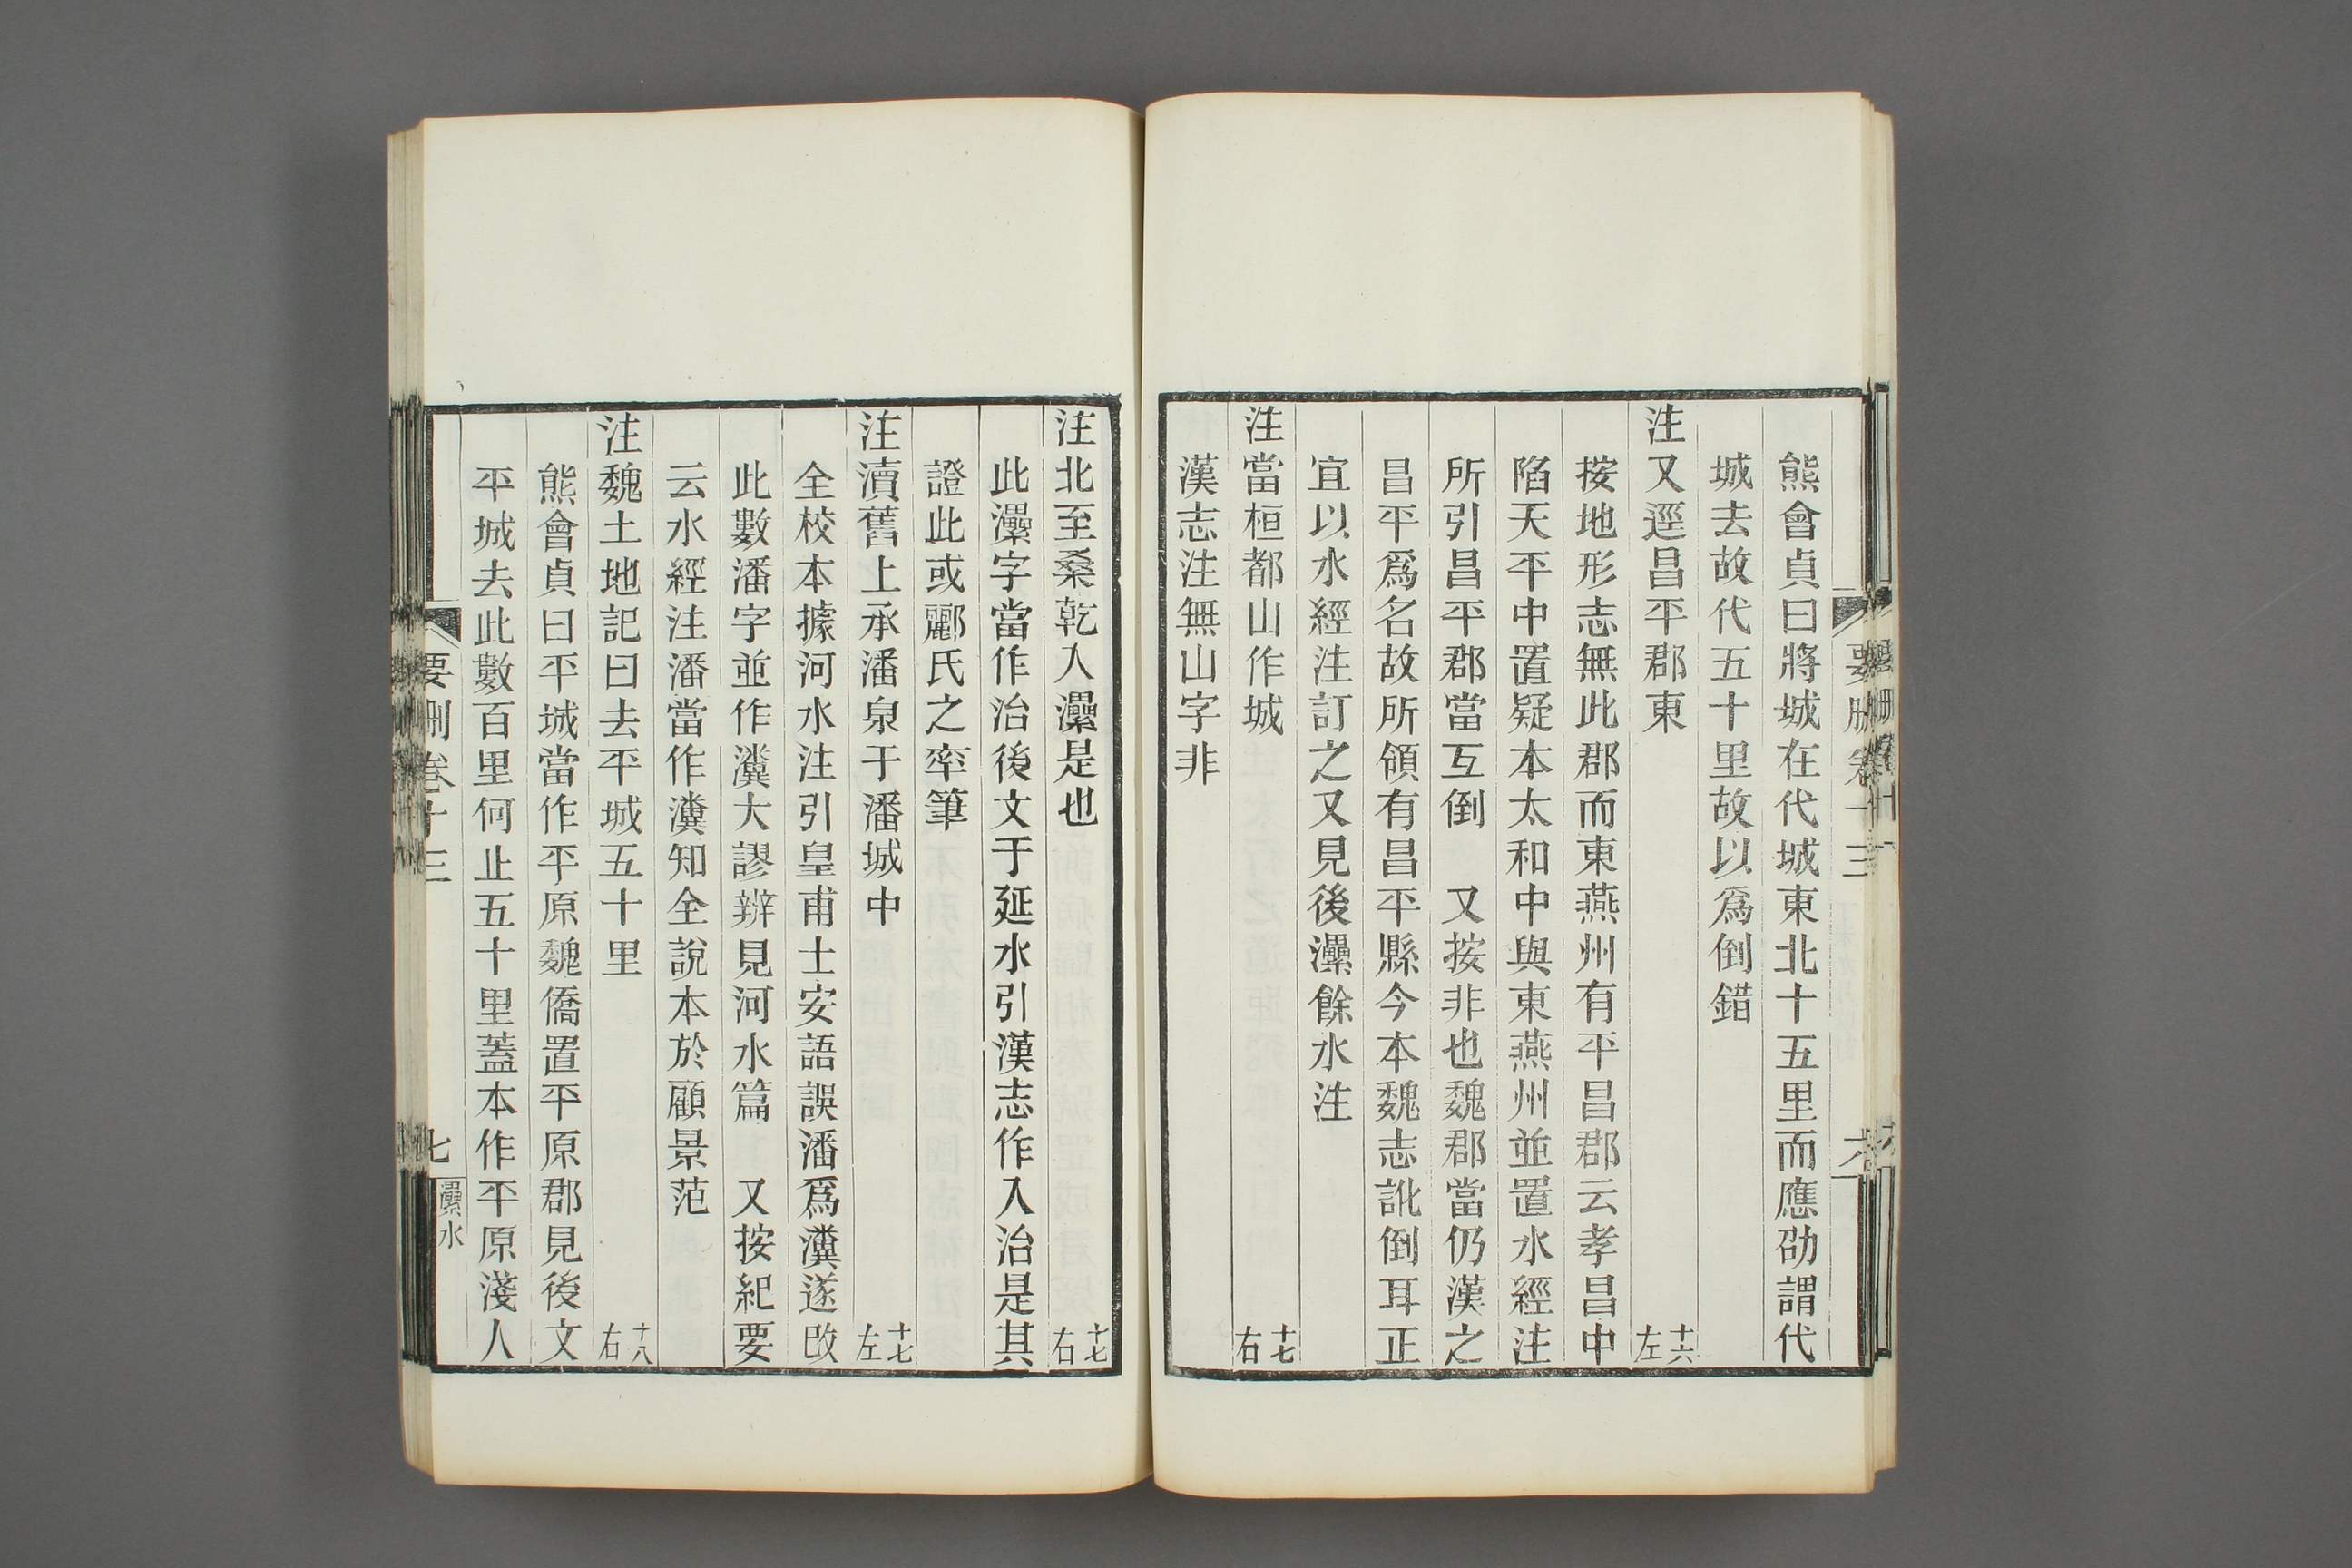 熊會貞曰將城在代城東北十五里而應劭謂代
城去故代五十里故以爲倒錯
注又逕昌平郡東 十六左
按地形志無此郡而東燕州有平昌郡云孝昌中
陷天平中置疑本太和中與東燕州並置水經注
所引昌平郡當互倒 又按非也魏郡當仍漢之
昌平爲名故所領有昌平縣今本魏志訛倒耳正
宜以水經注訂之又見後灅餘水注
注當桓都山作城 十七右
漢志注無山字非
注北至桑乾入灅是也 十七右
此灅字當作治後文于延水引漢志作入治是其
證此或酈氏之率筆
注瀆舊上承潘泉于潘城中 十七左
全校本據河水注引皇甫士安語誤潘爲瀵遂改
此數潘字並作瀵大謬辨見河水篇 又按紀要
云水經注潘當作瀵知全說本於顧景范
注魏土地記曰去平城五十里 十八右
熊會貞曰平城當作平原魏僑置平原郡見後文
平城去此數百里何止五十里蓋本作平原淺人
要刪卷十三 七 灅水